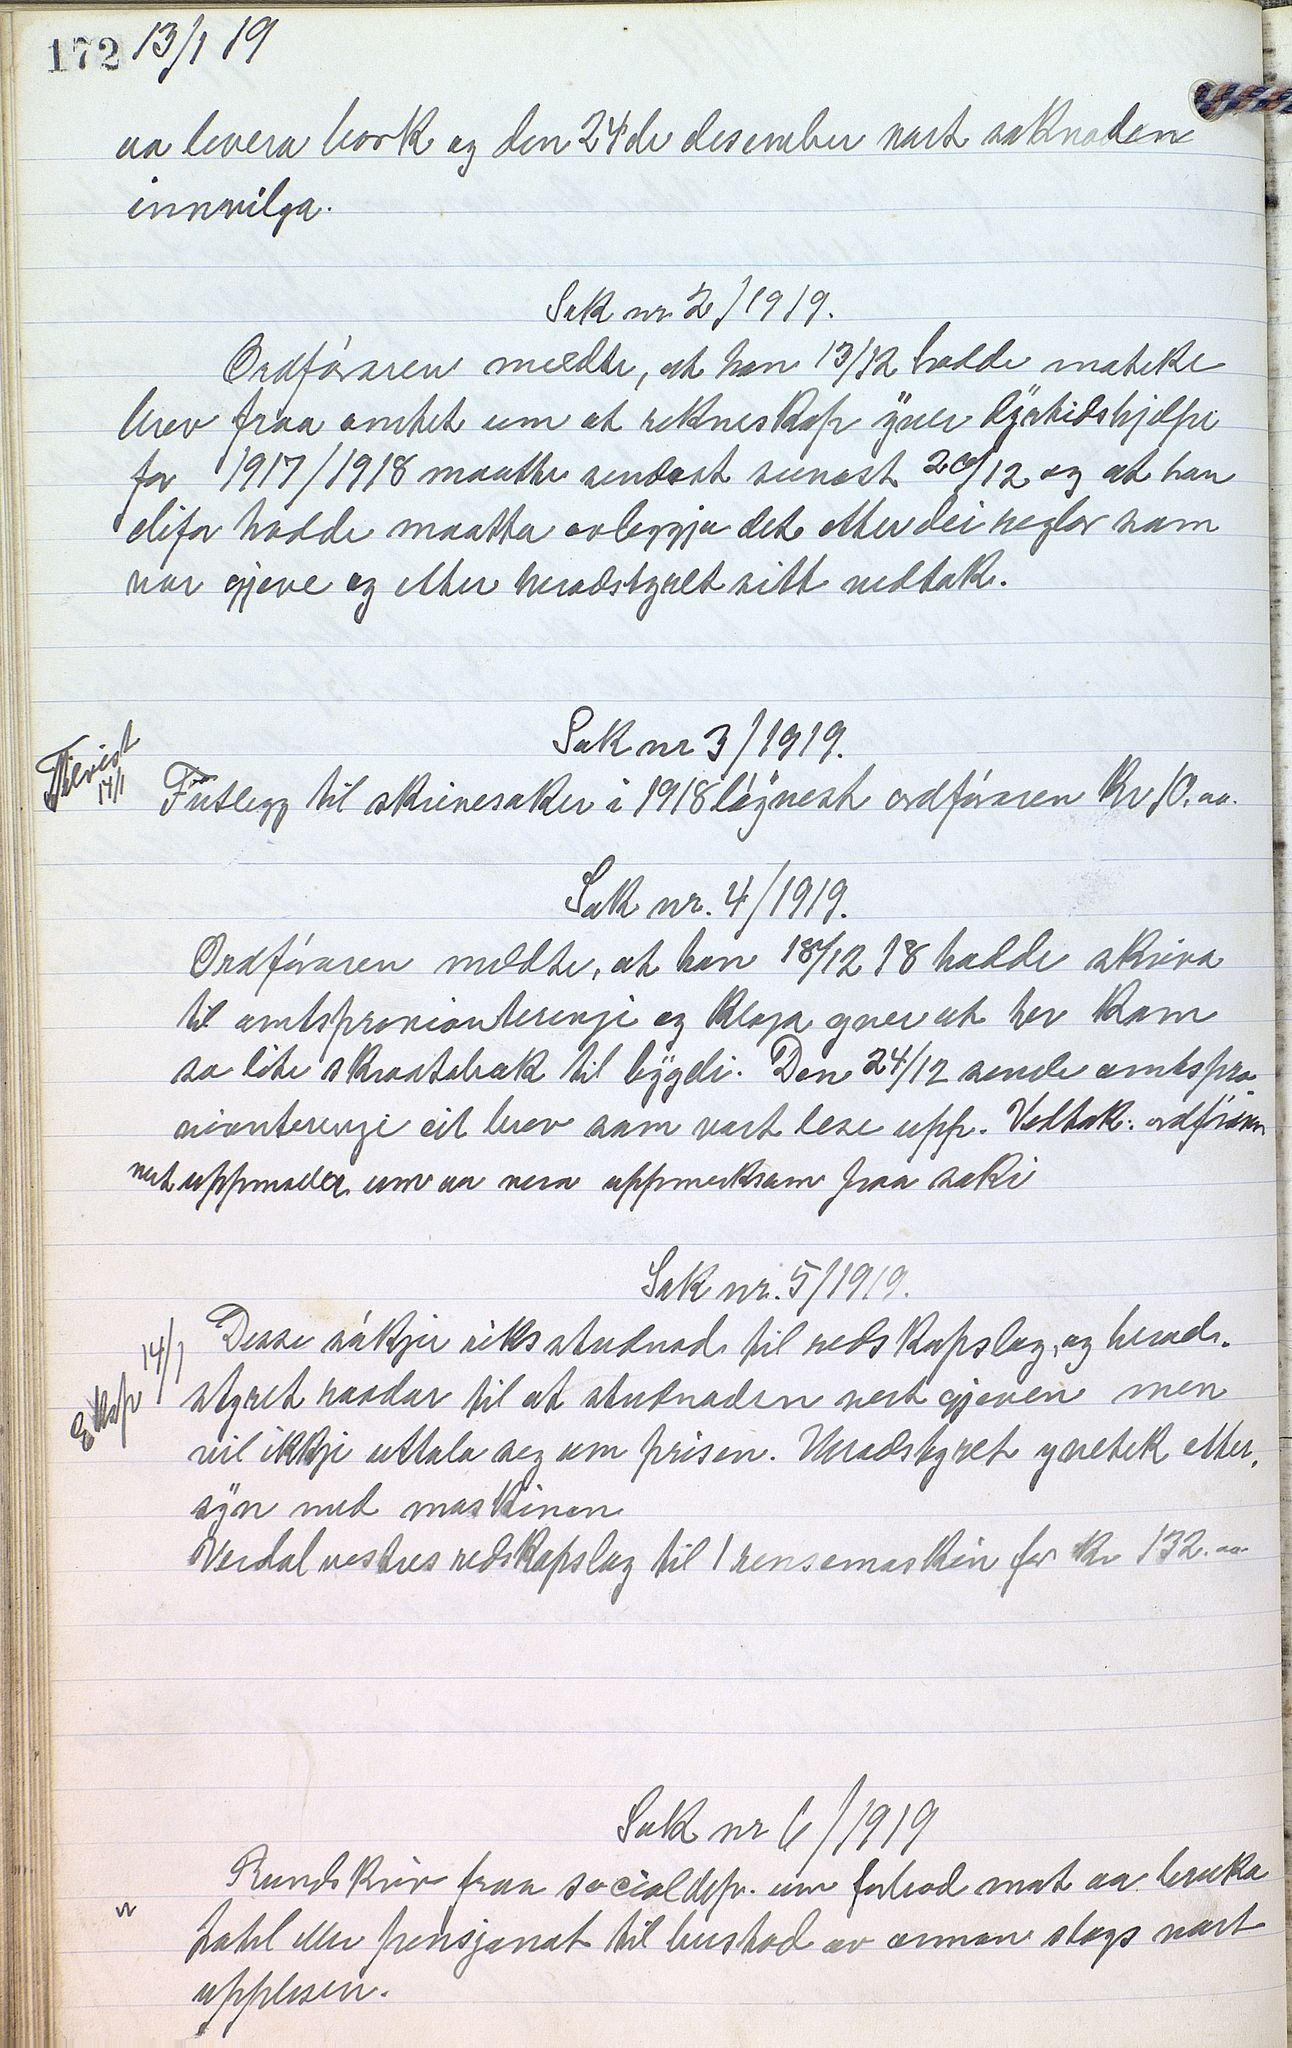 172 13/1 19
aa levera bork og den 24de desember vart søknaden
innvilga.
Sak nr. 2/1919.
Ordføraren meldte, at han 13/12 hadde motteke
brev fraa amtet um at rekneskap yver dyrtidshjelpi
for 1917/1918 maatte sendast seinast 20/12 og at han
difor hadde maatta avleggja det etter dei reglar som
var gjeve og etter heradstyret sitt vedtak.
Sak nr 3/1919.
Tilvist
14/1
Fútlegg til skrivesaker i 1918 løyvest ordføraren kr 10.00.
Sak nr. 4/1919.
Ordføraren meldte, at han 18/12 18 hadde skriva
til amtsprovianteringi og klaga yver at her kom
so lite skraatobak til bygdi. Den 24/12 sende amtspro-
vianteringi eit brev som vart lese upp. Vedtak: ordføraren
vert uppmoder um aa vera uppmerksam paa saki
Sak nr. 5/1919.
E kop 14/1
Desse søkjer riksstudnad til redskapslag, og herad-
styret raadar til at studnaden vert gjeven men
vil ikkje uttala seg um prisen. Heradstyret yvetek etter-
syn med maskinen
Verdal vestres redskapslag til 1 rensemaskin for kr 132.00
Sak nr 6/1919
Rundskriv fraa socialdep. um forbod mot aa bruka
hotel eller pensjonat til bustad av annan slags vart
upplesen.